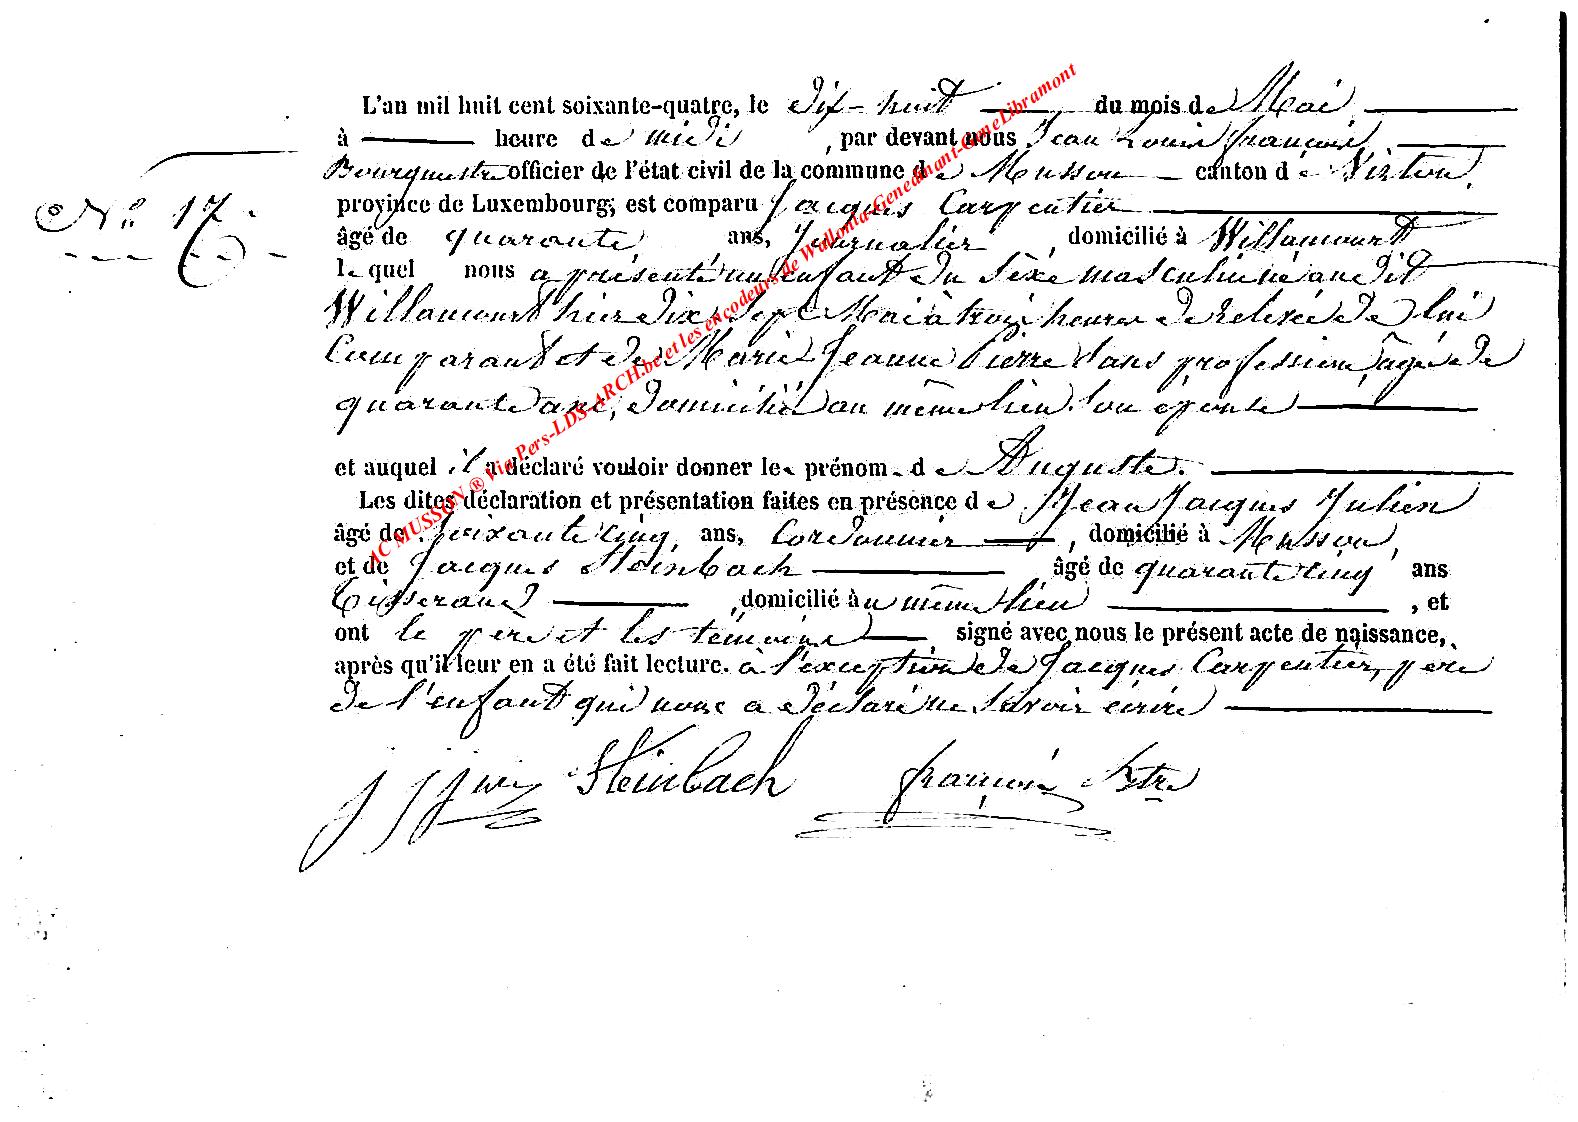 L'an mil huit cent soixante-quatre, le dix-huit du mois de Mai,
à heure de midi, par devant nous Jean Louis françois,
Bourgmestre officier de l'état civil de la commune de Musson canton de Virton,
N° 17. province de Luxembourg, est comparu Jacques Carpentier
âgé de quarante ans, Journalier, domicilié à Willancourt
lequel nous a présenté un enfant du Sexe masculin né au dit
Willancourt hier dix Sept Mai à trois heures de relevée de lui
Comparant et de Marie Jeanne Pierre Sans profession, âgé de
quarante ans, domicilié au même lieu Son épouse
et auquel il a déclaré vouloir donner le prénom de Auguste.
Les dites déclaration et présentation faites en présence de Jean Jacques Julien
âgé de Soixante cinq, ans, Cordonnier, domicilié à Musson,
et de Jacques Steinbach âgé de quarante cinq ans
Tisserand, domicilié au même lieu, et
ont le père et les témoins signé avec nous le présent acte de naissance,
après qu'il leur en a été fait lecture. à l'exception de Jacques Carpentier, père
de l'enfant qui nous a déclaré ne Savoir écrire
Steinbach françois Bstre
AC MUSSON ® Via Pers-LDS-ARCH.be et les encodeurs de Wallonia-Genedinant-GeneLibramont